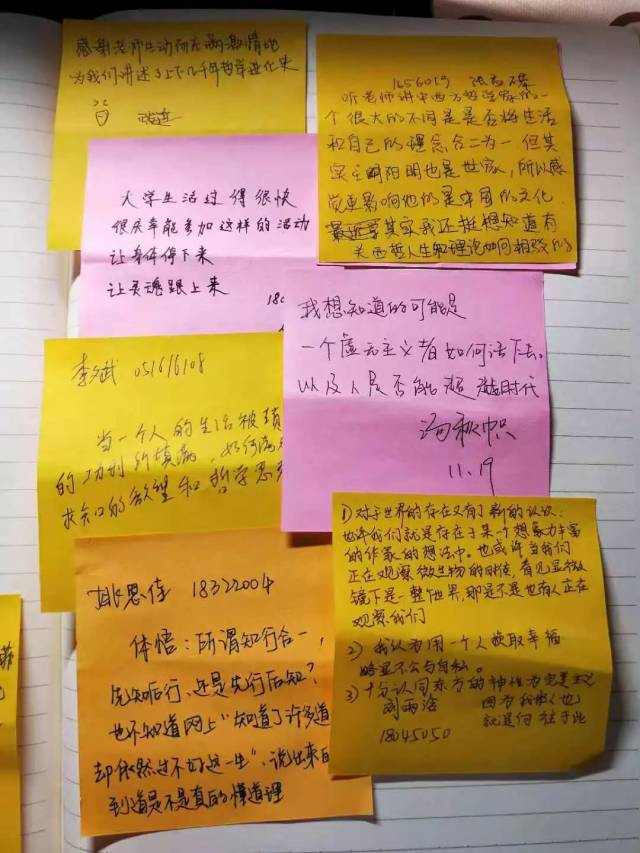 感谢老师生动而充满激情地
为我们讲述了上下几千年哲学进化史
听老师讲中西方哲学家的一
个很大的不同是是否将生活
和自己的理念合二为一但其
实王阳明也是世家，所以感
觉更影响他们的是中国的文化
其实我还挺想知道有
关西哲人生和理论如何相驳的
大学生活过得很快
很庆幸能参加这样的活动
让身体停下来
让灵魂跟上来
我想知道的可能是
一个虚无主义者如何活下去。
以及人是否能超越时代
11.19
李斌 051616108
当一个人的生活被
的功利所填满，如何
求知的欲望和哲学思
姚思佳 18322004
体悟：所谓知行合一，
先知后行，还是先行后知？
也不知道网上“知道了许多道
却依然过不好这一生”，说出来
到道是不是真的懂道理
1) 对于世界的存在又有了新的认识：
也许我们就是存在于某一个想象力丰富
的作家的想法中。也或许当我们
正在观察微生物的时候，看见显微
镜下是一整个世界，那是不是也有人正在
观察我们
2) 我认为用一个人换取幸福
略显不公与自私。
3) 十分认同东方的神性为完美主义
刘雨洁 因为我们也
就是向往于此
18045050